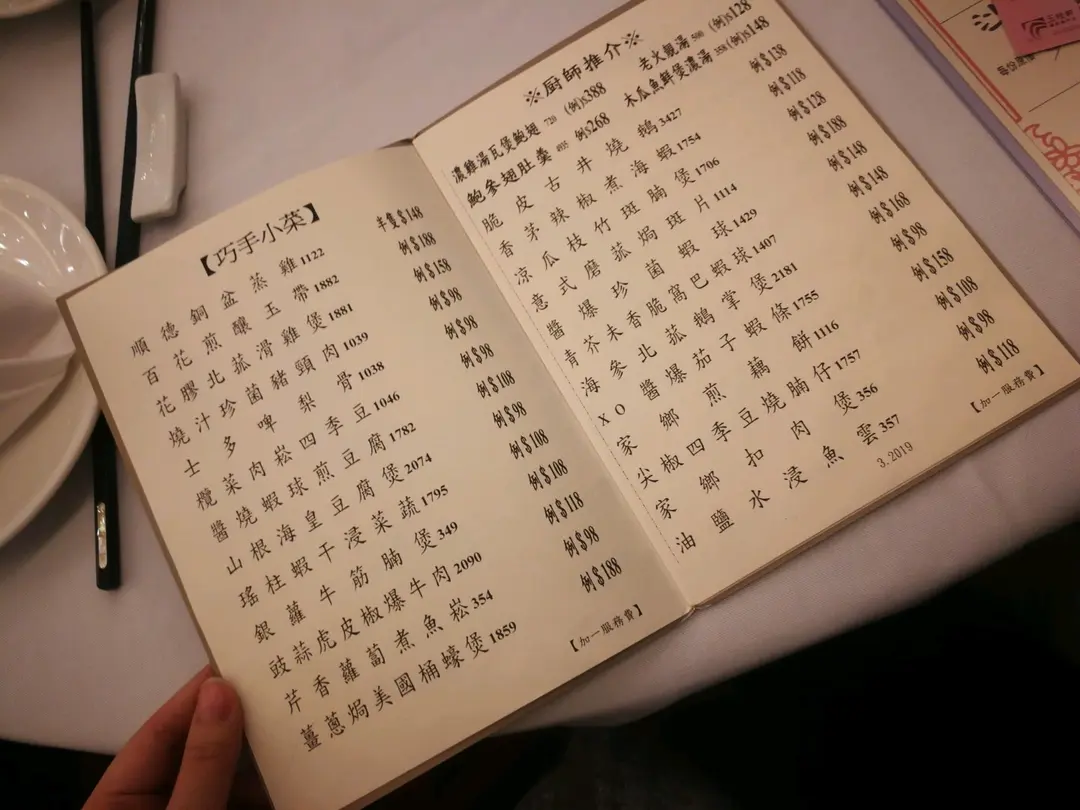 【巧手小菜】
順德銅盆蒸雞 1122 半隻$148
百花煎釀玉帶 1882 例$188
花膠北菰滑雞煲 1881 例$158
燒汁珍菌豬頸肉 1039 例$98
士多啤梨骨 1038 例$98
欖菜肉崧四季豆 1046 例$98
醬燒蝦球煎豆腐 1782 例$108
山根海皇豆腐煲 2074 例$98
瑤柱蝦干浸菜蔬 1795 例$108
銀蘿牛筋腩煲 349 例$108
豉蒜虎皮椒爆牛肉 2090 例$118
芹香蘿蔔煮魚崧 354 例$98
薑蔥焗美國桶蠔煲 1859 例$188
【加一服務費】
※厨師推介※
濃雞湯瓦煲鮑翅 720 (例)$388 老火靚湯 500 (例)$128
鮑參翅肚羹 例$268 木瓜魚鮮煲濃湯 358 (例)$148
脆皮古井燒鵝 3427 例$138
香茅辣椒煮海蝦 1754 例$118
涼瓜枝竹斑腩煲 1706 例$128
意式磨菰焗斑片 1114 例$188
醬爆珍菌蝦球 1429 例$148
青芥末香脆窩巴蝦球 1407 例$148
海參北菰鵝掌煲 2181 例$168
XO醬爆茄子蝦條 1755 例$98
家鄉煎藕餅 1116 例$158
尖椒四季豆燒腩仔 1757 例$108
家鄉扣肉煲 356 例$98
油鹽水浸魚雲 357 例$118
3.2019 【加一服務費】